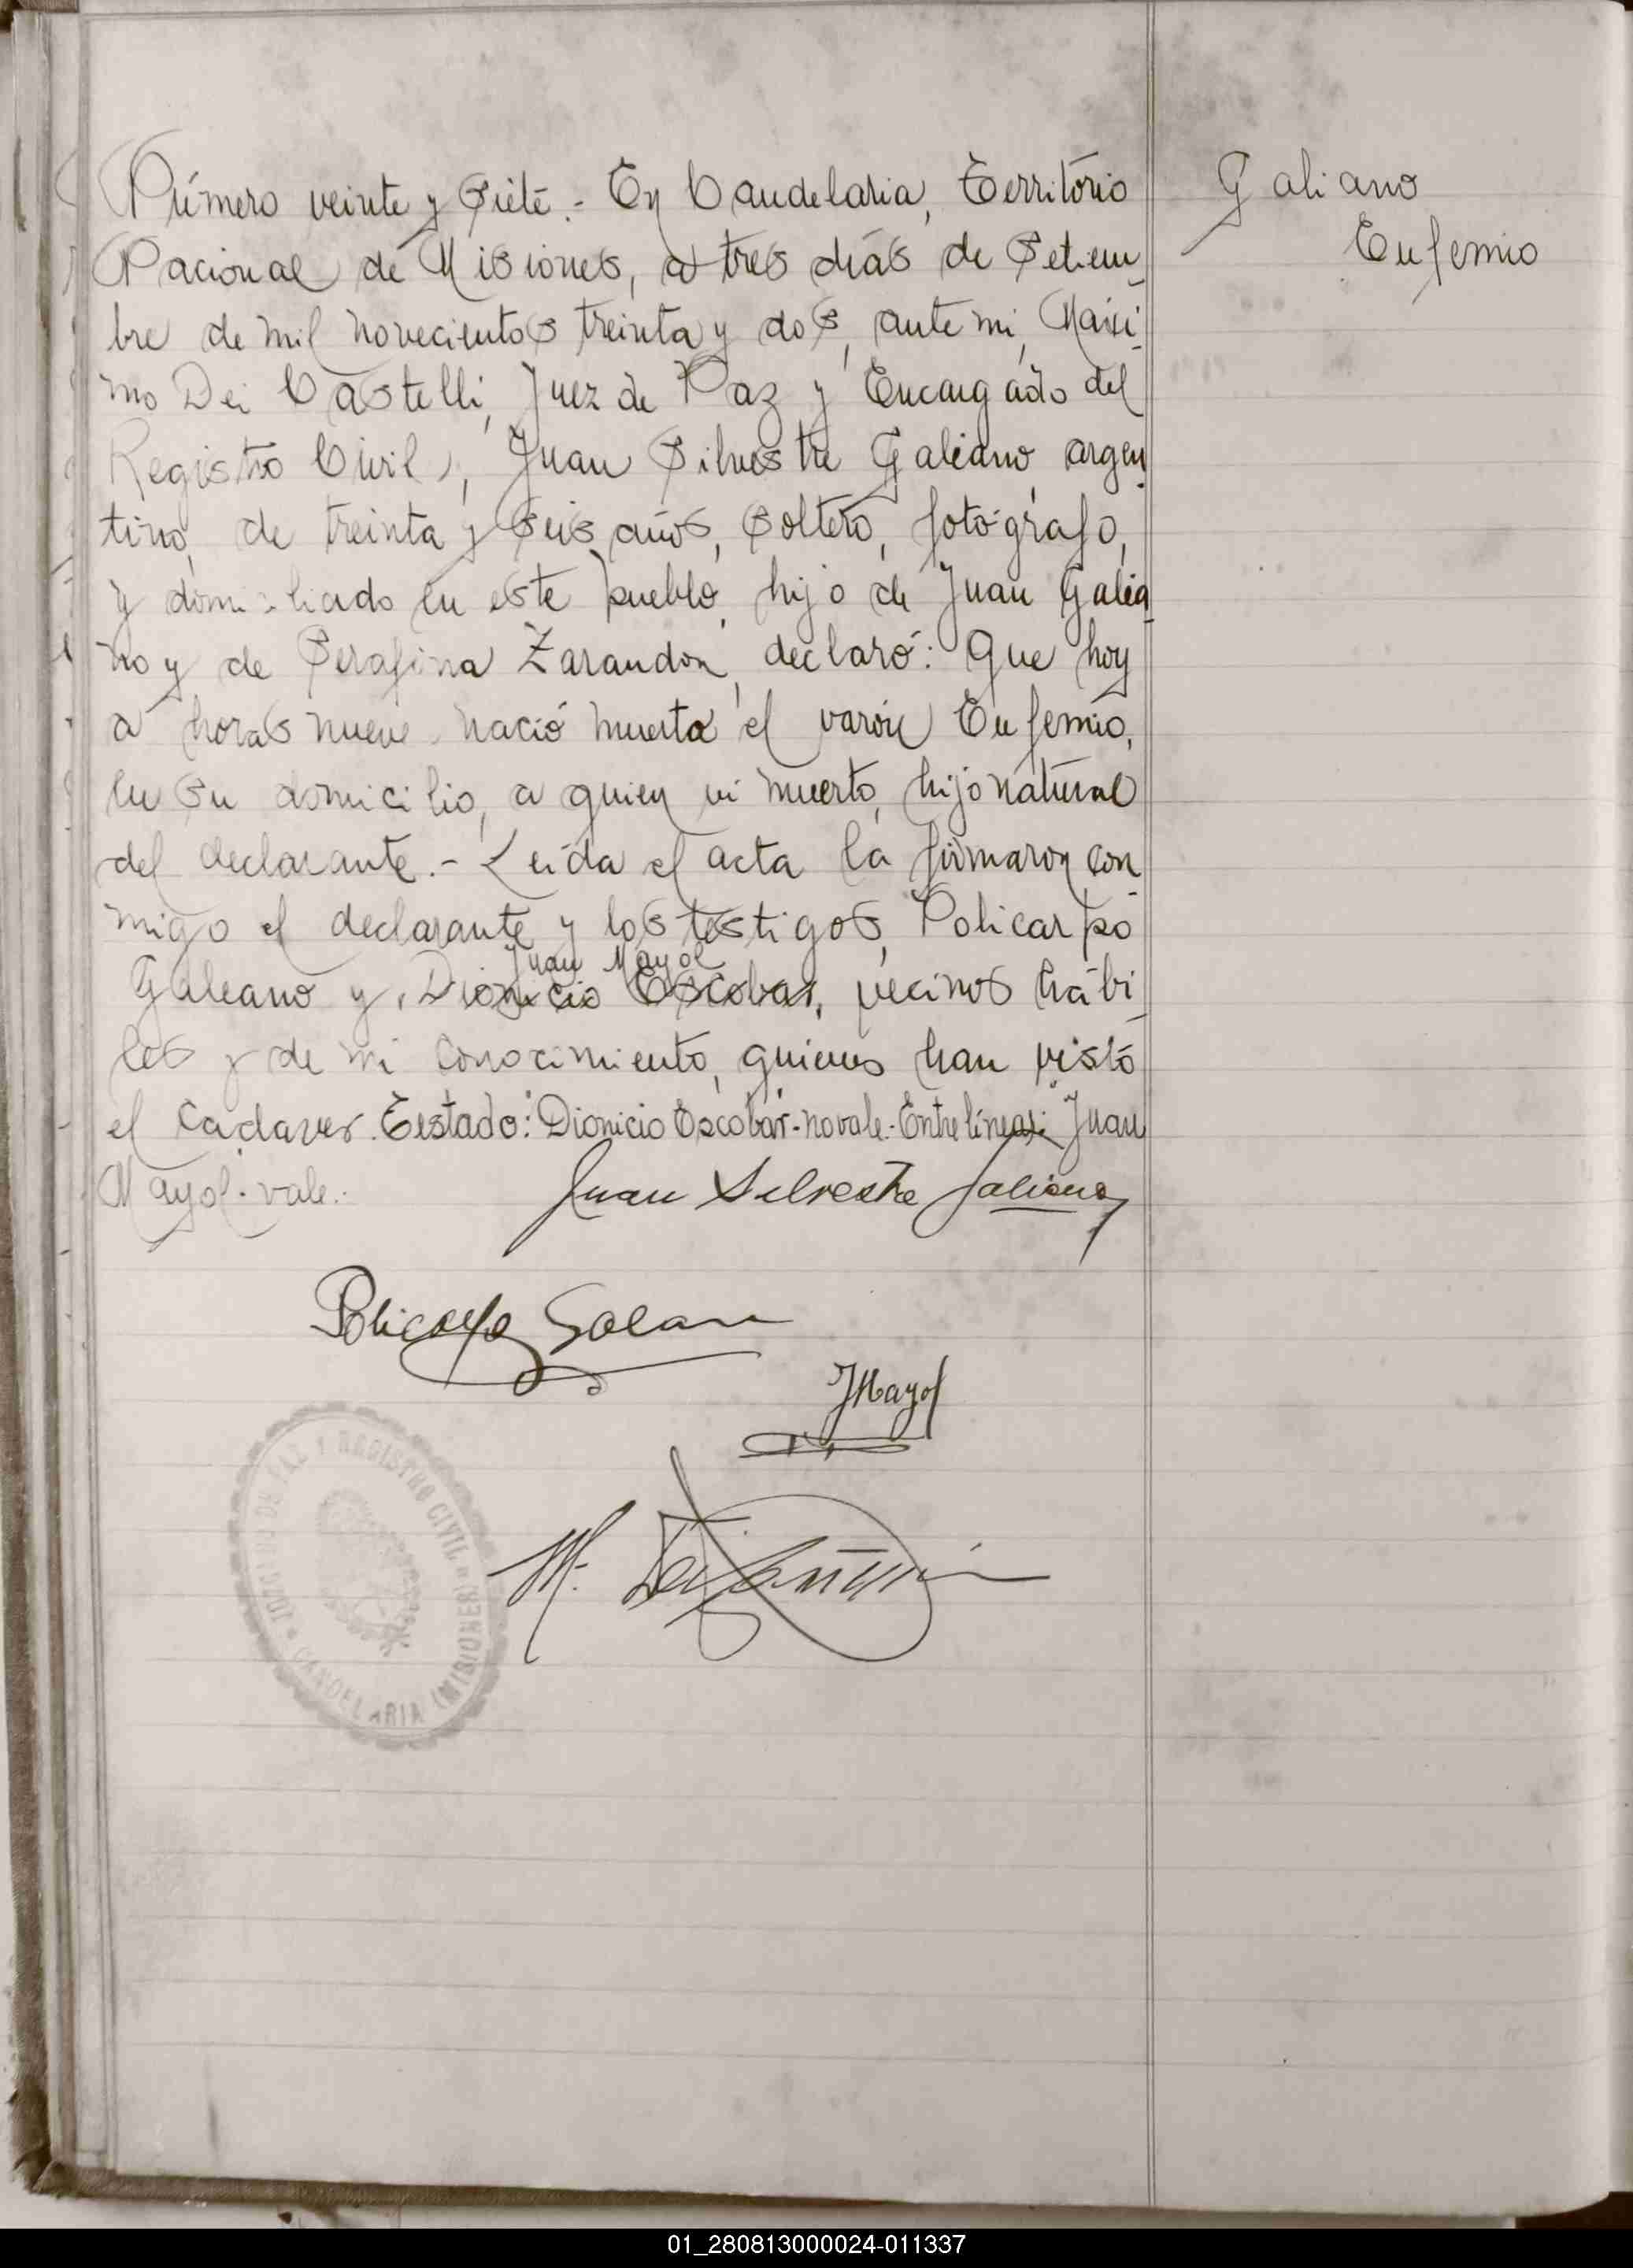 Número veinte y siete.- En Candelaria, Território
Nacional de Misiones, a tres días de Setiem-
bre de mil novecientos treinta y dos, ante mi, Maxi-
mo Dei Castelli, Juez de Paz y Encargado del
Registro Civil, Juan Silvestre Galeano, argen-
tino, de treinta y seis años, soltero, fotógrafo,
y domiciliado en este pueblo, hijo de Juan Galea-
no y de Serafina Zarandon, declaró: Que hoy
a horas nueve nació muerto el varón Eufemio,
en su domicilio, a quien vi muerto, hijo natural
del declarante.- Leída el acta la firmaron con-
migo el declarante y los testigos, Policarpo
Juan Mayol
Galeano y, Dionicio Escobar, vecinos hábi-
les y de mi conocimiento, quienes han visto
el cadaver. Testado: Dionicio Escobar-no vale.-Entre líneas: Juan
Mayol-vale.-
Juan Silvestre Galiano
Policarpo Galeano
JMayol
M. Dei Castelli
JUZGADO DE PAZ Y REGISTRO CIVIL
CANDELARIA (MISIONES)
Galiano
Eufemio
01_280813000024-011337